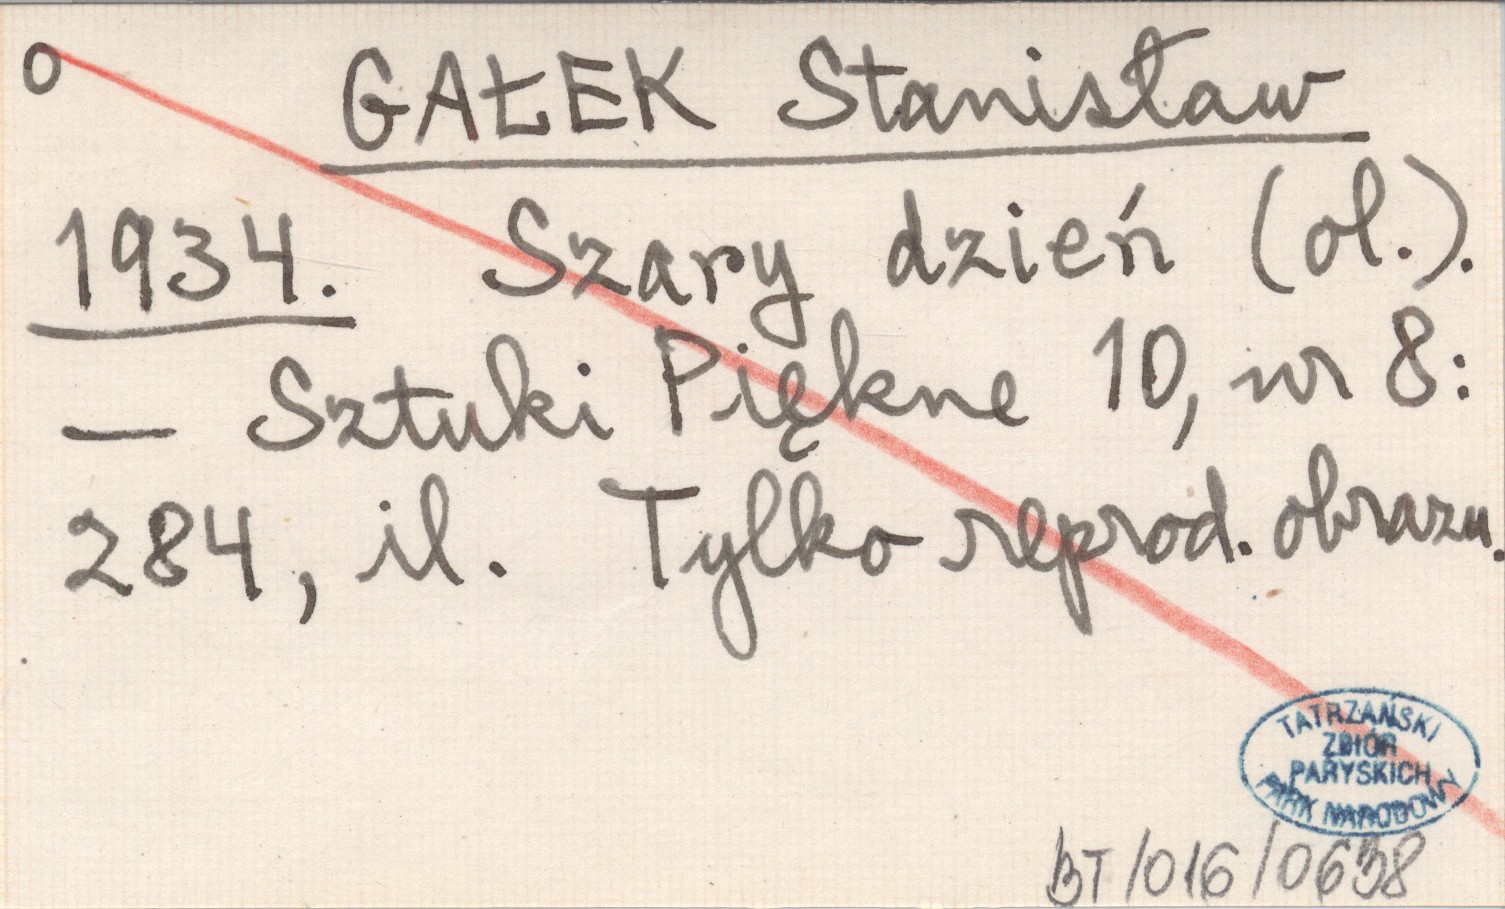 o GAŁEK Stanisław
1934. Szary dzień (ol.).
— Sztuki Piękne 10, nr 8:
284, il. Tylko reprod. obrazu.
TATRZAŃSKI
ZBIÓR
PARYSKICH
PARK NARODOWY
BT/016/0638